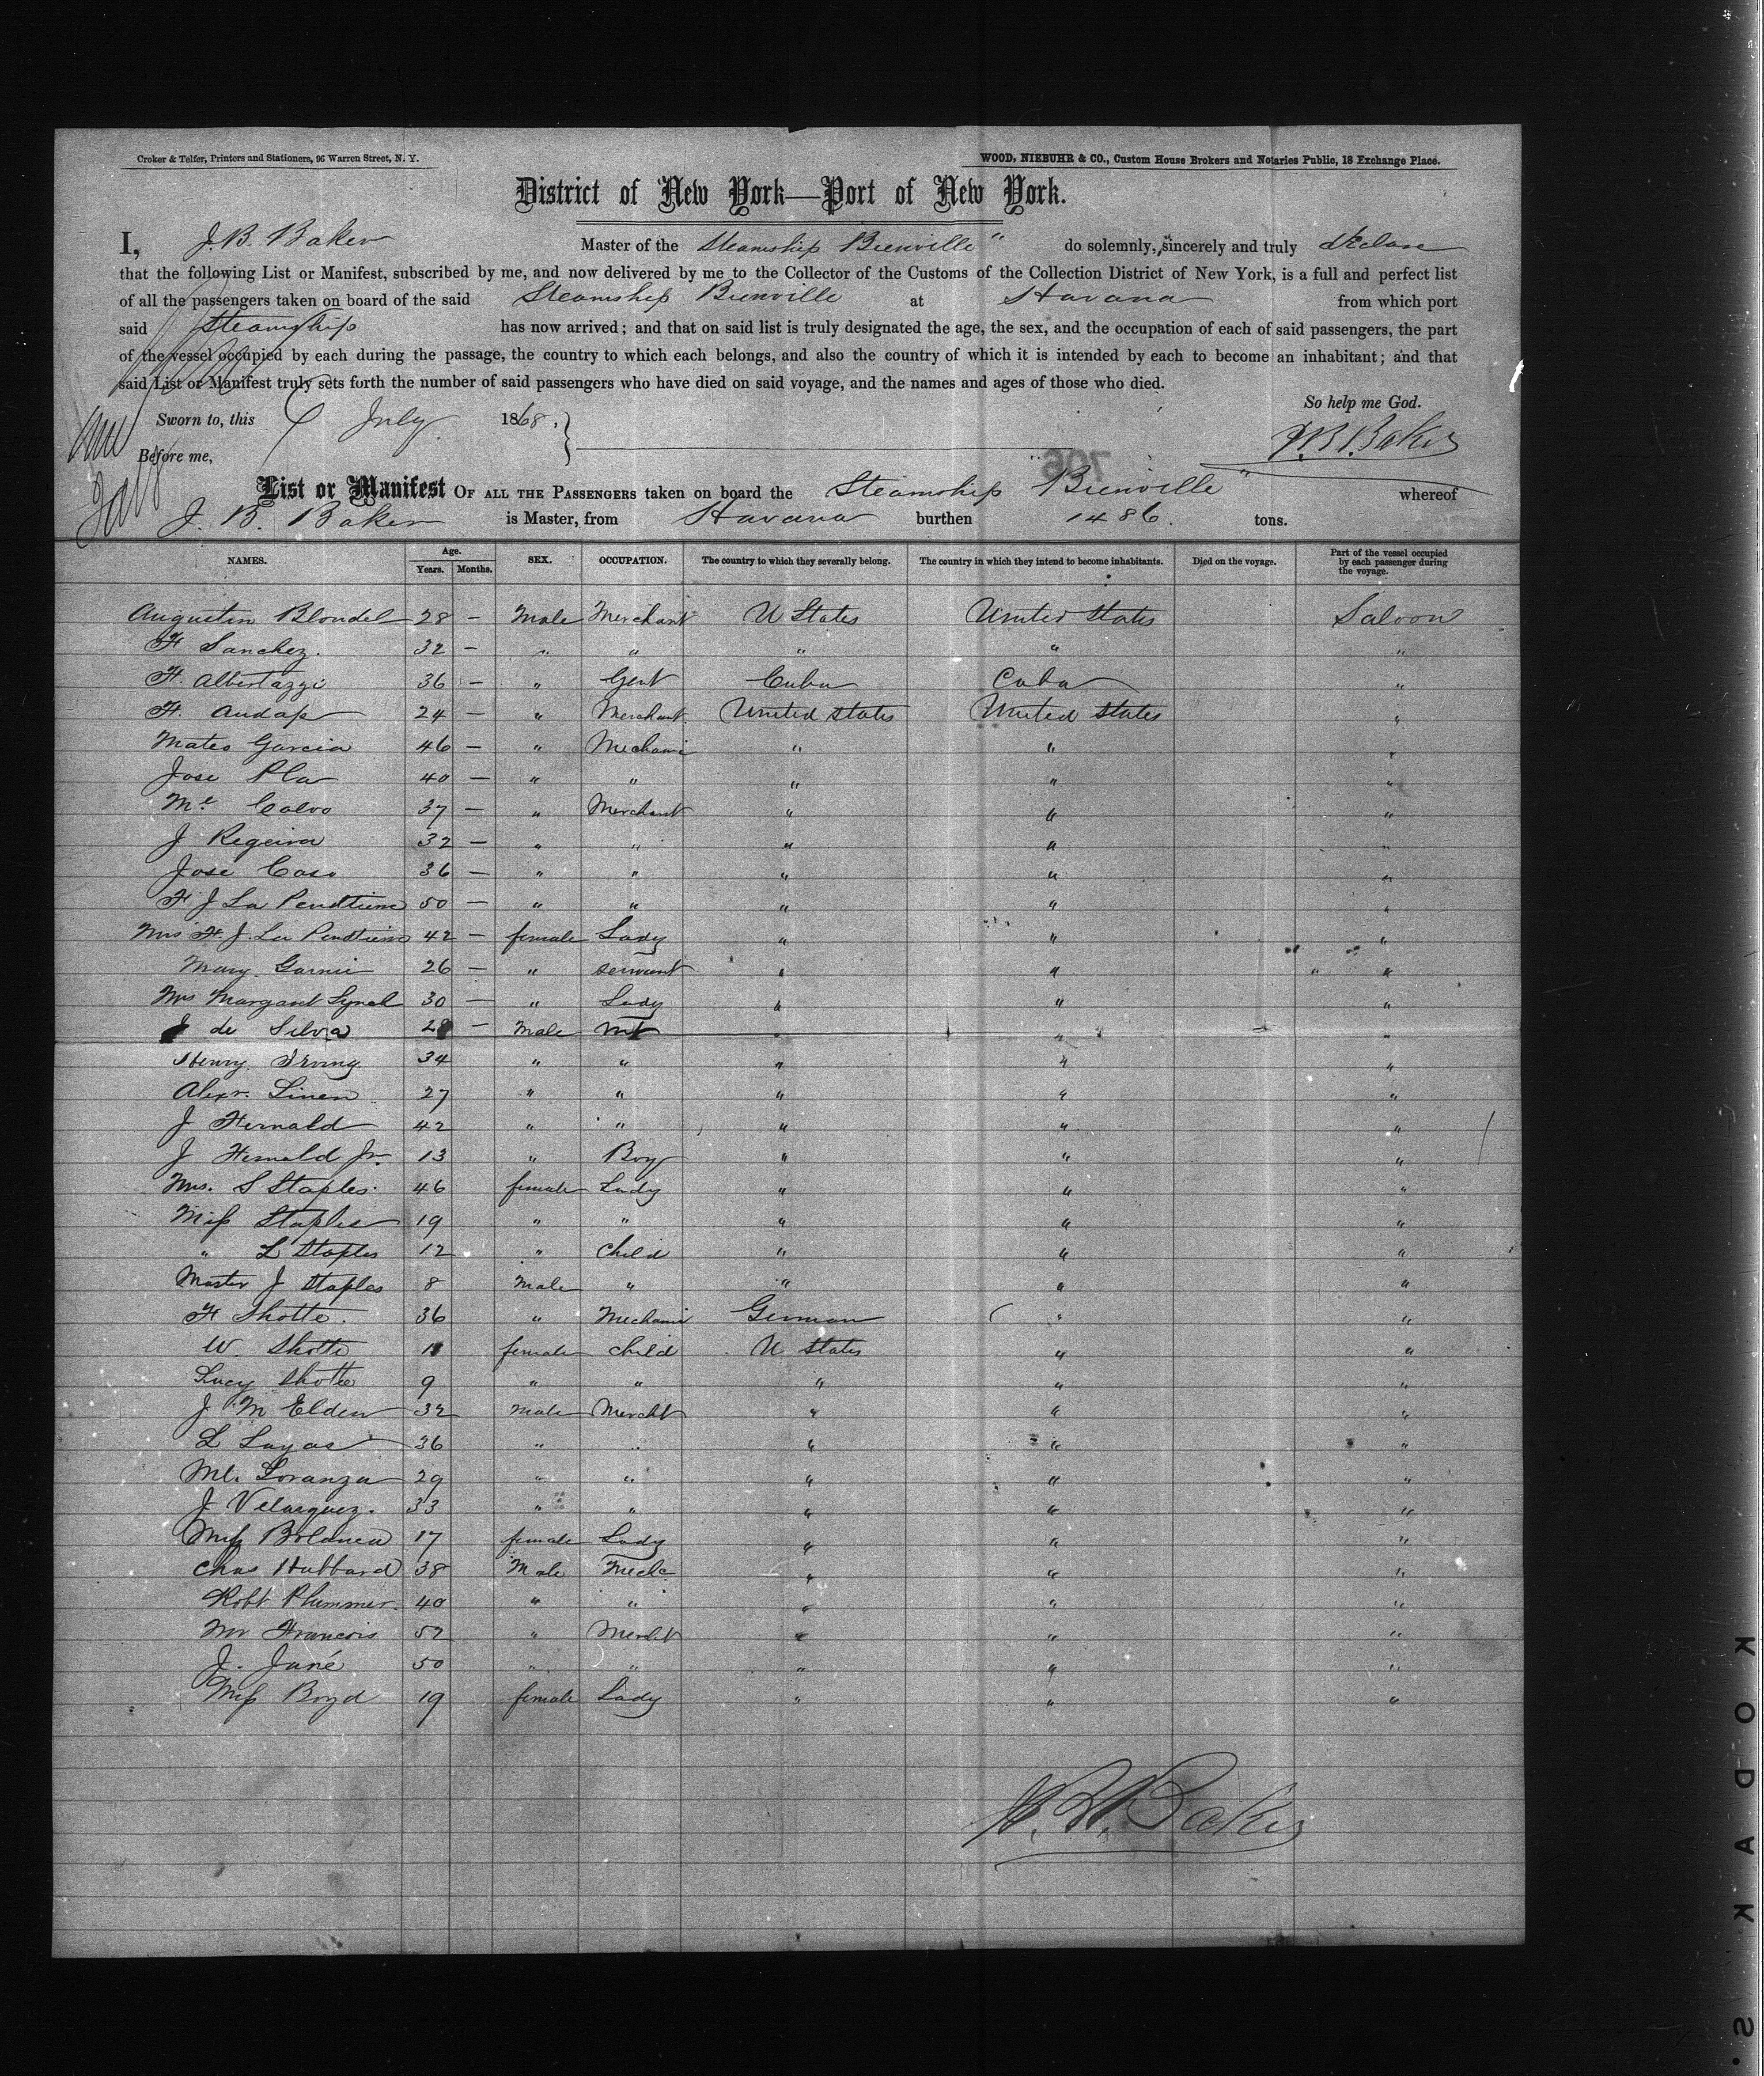 Croker & Telfer, Printers and Stationers, 96 Warren Street, N. Y. WOOD, NIEBUHR & CO., Custom House Brokers and Notaries Public, 18 Exchange Place.
District of New York—Port of New York.
I, J. B. Baker Master of the Steamship Bienville" do solemnly, sincerely and truly declare
that the following List or Manifest, subscribed by me, and now delivered by me to the Collector of the Customs of the Collection District of New York, is a full and perfect list
of all the passengers taken on board of the said Steamship Bienville at Havana from which port
said Steamship has now arrived; and that on said list is truly designated the age, the sex, and the occupation of each of said passengers, the part
of the vessel occupied by each during the passage, the country to which each belongs, and also the country of which it is intended by each to become an inhabitant; and that
said List or Manifest truly sets forth the number of said passengers who have died on said voyage, and the names and ages of those who died.
So help me God.
Sworn to, this July 1868. J. B. Baker
Before me,
706
List or Manifest OF ALL THE PASSENGERS taken on board the Steamship Bienville" whereof
J. B. Baker is Master, from Havana burthen 1486. tons.
NAMES. Age. Years. Months. SEX. OCCUPATION. The country to which they severally belong. The country in which they intend to become inhabitants. Died on the voyage. Part of the vessel occupied by each passenger during the voyage.
Augustin Blondel 28 — Male Merchant U States United States Saloon
F Sanchez. 32 — " " " " "
F. Albertazzi 36 — " Gent Cuba Cuba "
F. Audap 24 — " Merchant United States United States "
Mateo Garcia 46 — " Mechanic " " "
Jose Pla 40 — " " " " "
Ml Calvo 37 — " Merchant " " "
J Regeira 32 — " " " " "
Jose Caso 36 — " " " " "
F J La 50 — " " " " "
Mrs F. J. La 42 — female Lady " " "
Mary 26 — " servant " " "
Mrs Margaret 30 — " Lady " " "
J de Silva — Male " " "
Henry Irving 34 " " " " "
Alexr. Linen 27 " " " " "
J Fernald 42 " " " " "
J Fernald Jr. 13 " Boy " " "
Mrs. S Staples 46 female Lady " " "
Miss Staples 19 " " " " "
" L Staples 12 " child " " "
Master J Staples 8 Male " " " "
F Shotte. 36 " Mechanic German " "
W. Shotte female child U States " "
Lucy Shotte 9 " " " " "
J M Elden 32 Male Mercht " " "
L Layas 36 " " " " "
Ml. Loranza 29 " " " " "
J Velasquez. 33 " " " " "
Miss 17 female Lady " " "
Chas Hubbard 38 Male Mech " " "
Robt Plummer. 40 " " " " "
Mr Francois 52 " Mercht " " "
J. Jané 50 " " " " "
Miss Boyd 19 female Lady " " "
J. B. Baker
KODAK S